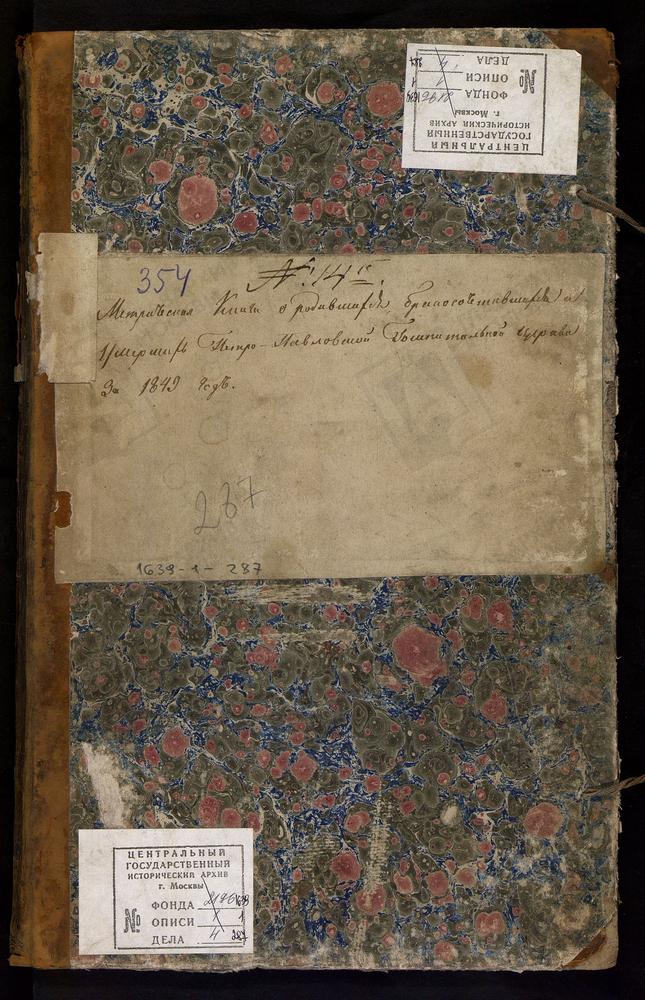 ЦЕНТРАЛЬНЫЙ
ГОСУДАРСТВЕННЫЙ
ИСТОРИЧЕСКИЙ АРХИВ
г. Москвы
№
ФОНДА
ОПИСИ 1
ДЕЛА 4 287
354
Метрическая Книга о родившихся бракосочетавшихся и
Умерших Петро-Павловской Гошпитальной Церкви
За 1849 годъ.
287
1639-1-287
ЦЕНТРАЛЬНЫЙ
ГОСУДАРСТВЕННЫЙ
ИСТОРИЧЕСКИЙ АРХИВ
г. Москвы
№
ФОНДА 1639
ОПИСИ 1
ДЕЛА 4 287